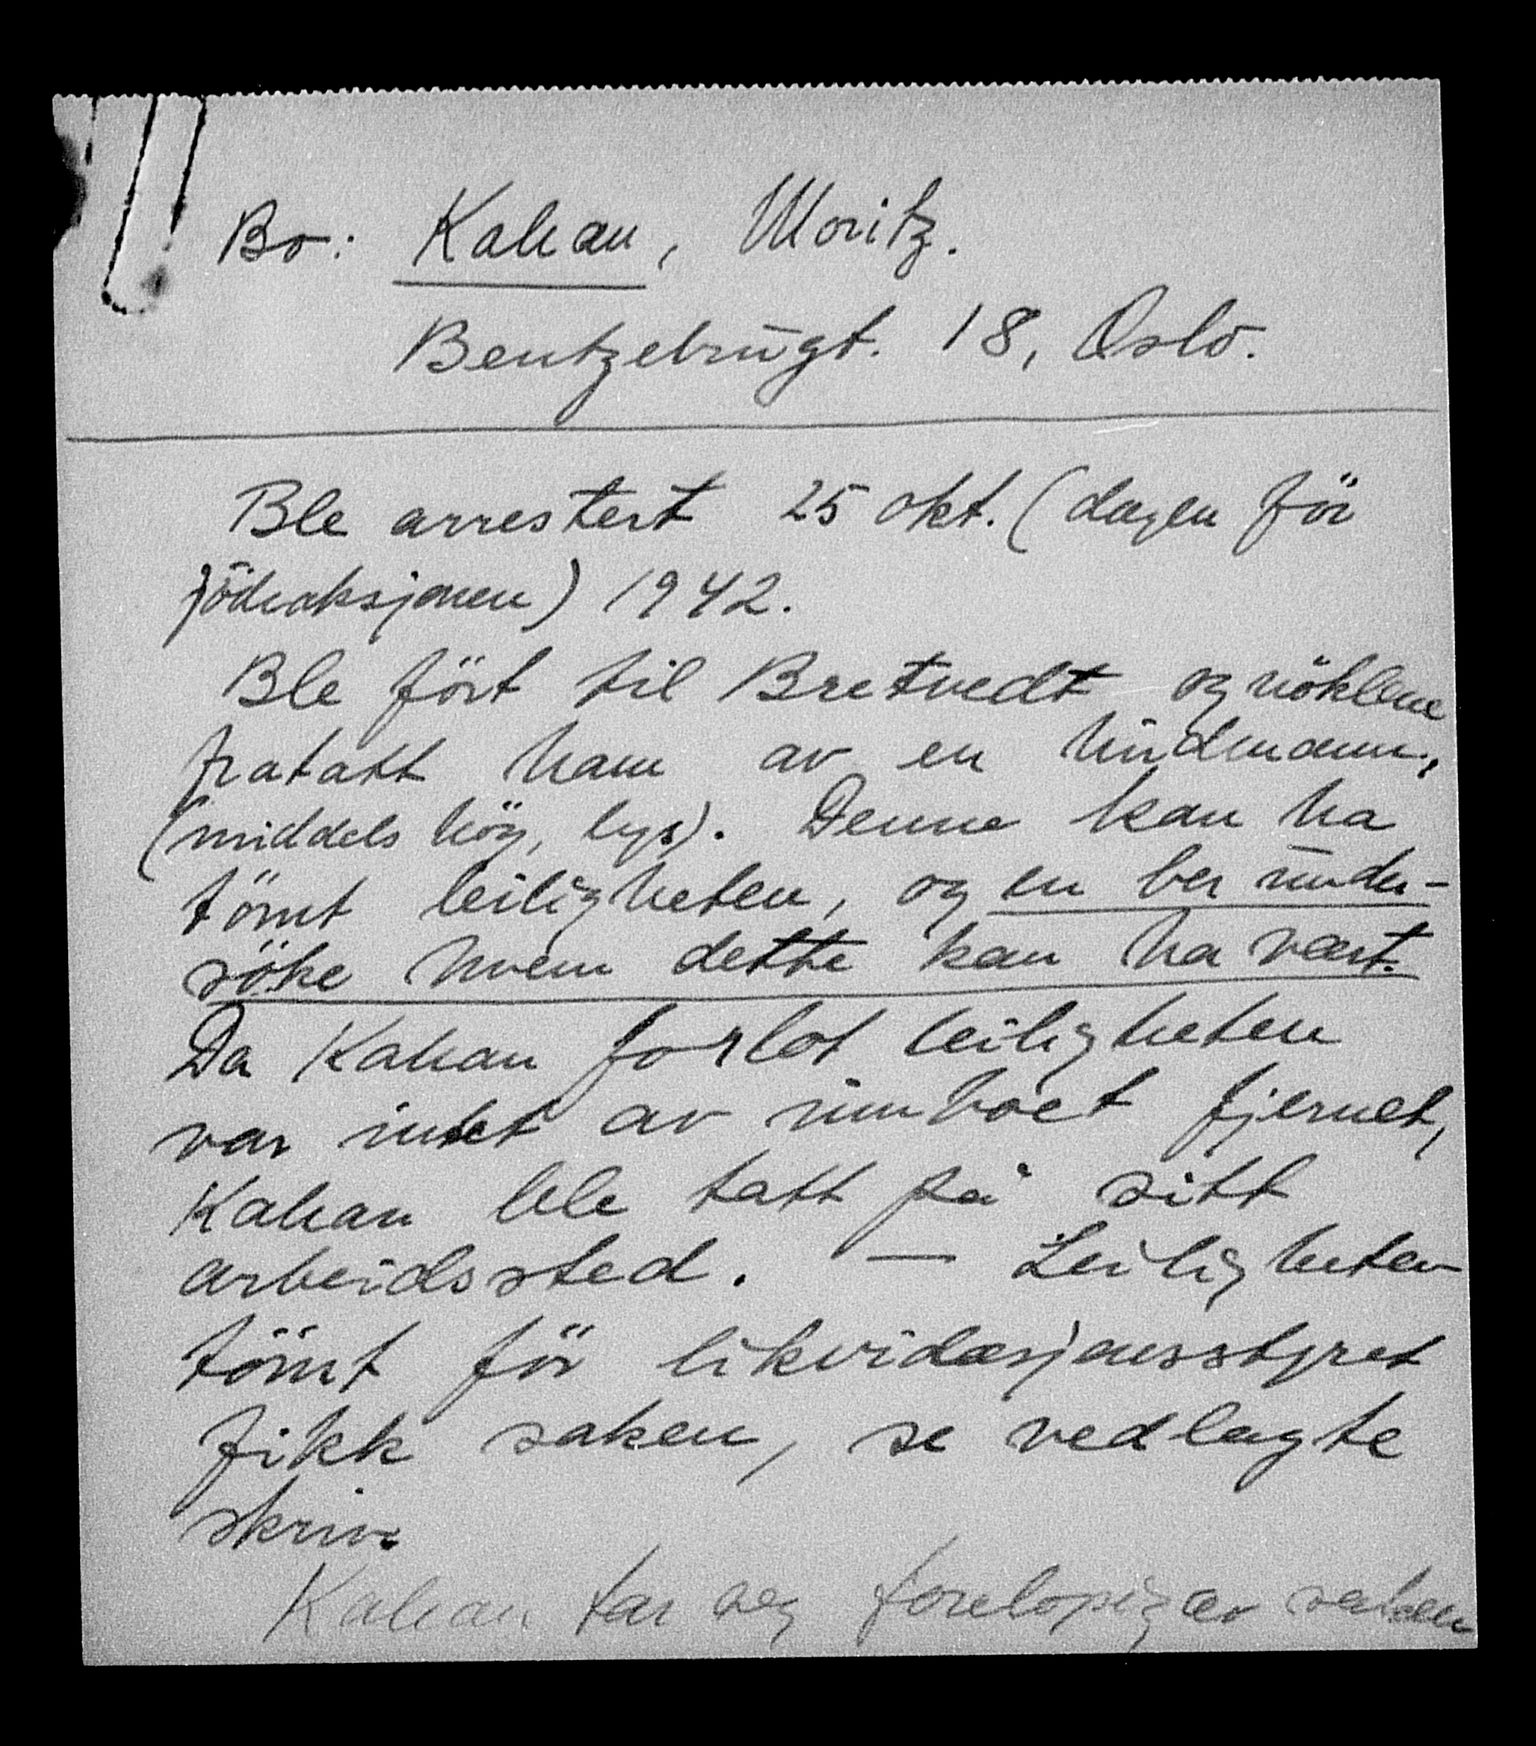 Bo: Kahan, Moritz.
Bentzebrugt. 18, Oslo.
Ble arrestert 25 okt. (dagen för
jödeaksjonen) 1942.
Ble fört til Bretvedt og nöklene
fratatt ham av en hirdmann,
(middels höy, lys). Denne kan ha
tömt leiligheten, og en ber under-
söke hvem dette kan ha vært.
Da Kahan forlot leiligheten
var intet av innboet fjernet,
Kahan ble tatt på sitt
arbeidssted. — Leiligheten
tömt för likvidasjonsstyret
fikk saken, se vedlagte
skriv.
Kahan tar seg forelöpig av saken